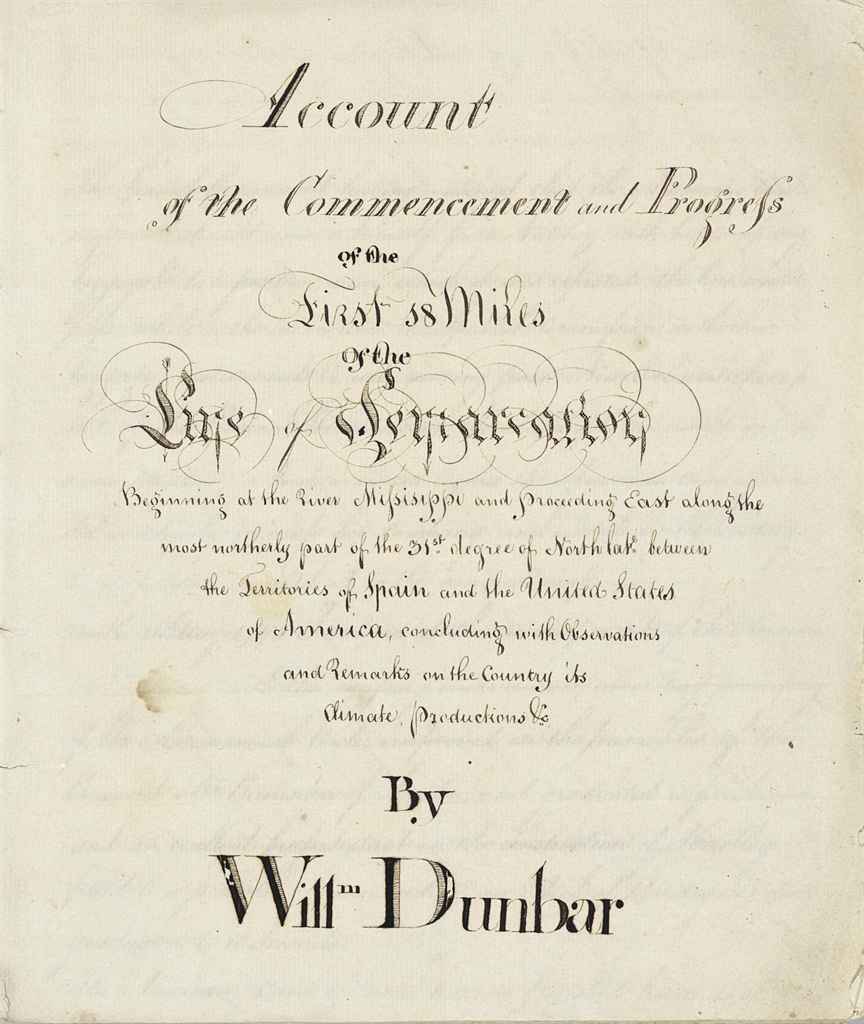 Account
of the Commencement and Progreſs
of the
First 18 Miles
of the
Line of Demarcation
Beginning at the River Miſsisippi and proceeding East along the
most northerly part of the 31st degree of North latde between
the Territories of Spain and the United States
of America, concluding with Observations
and Remarks on the Country its
Climate, productions &c
By
Willm Dunbar